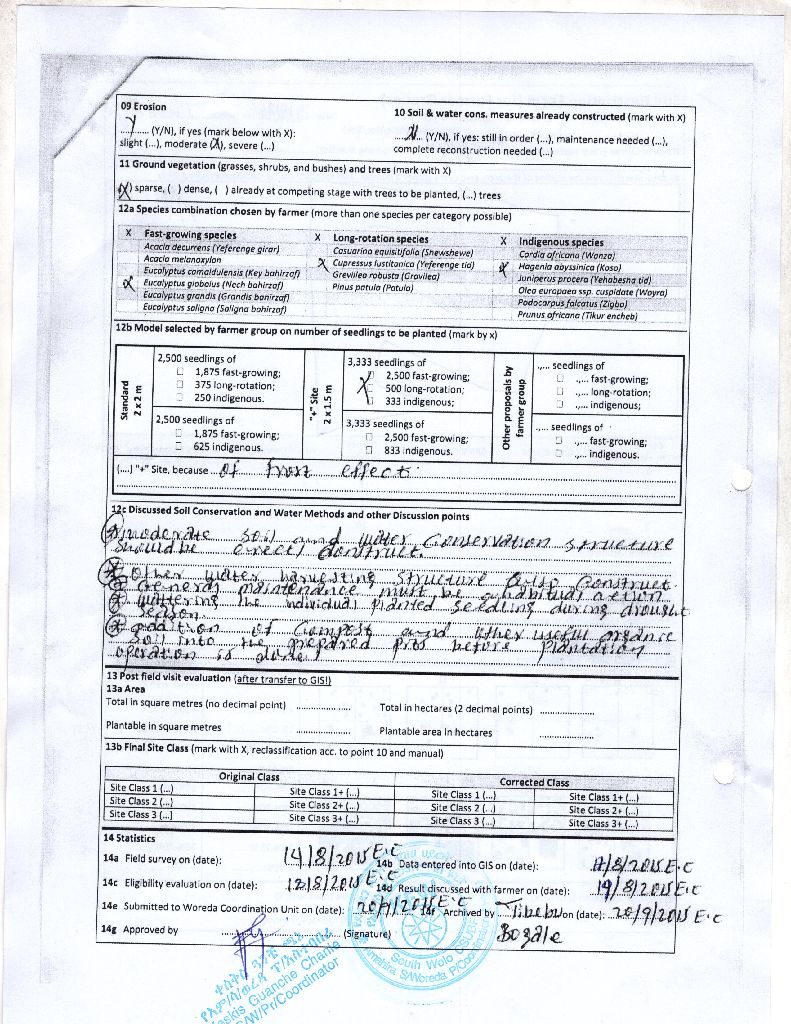 09 Erosion
Y (Y/N), if yes (mark below with X):
slight (...), moderate (X), severe (...)
10 Soil & water cons. measures already constructed (mark with X)
N (Y/N), if yes: still in order (...), maintenance needed (...),
complete reconstruction needed (...)
11 Ground vegetation (grasses, shrubs, and bushes) and trees (mark with X)
(X) sparse, ( ) dense, ( ) already at competing stage with trees to be planted, (...) trees
12a Species combination chosen by farmer (more than one species per category possible)
X Fast-growing species
Acacia decurrens (Yeferenge girar)
Acacia melanoxylon
Eucalyptus camaldulensis (Key bahirzaf)
X Eucalyptus globolus (Nech bahirzaf)
Eucalyptus grandis (Grandis bahirzaf)
Eucalyptus saligna (Saligna bahirzaf)
X Long-rotation species
Casuarina equisitifolia (Shewshewe)
X Cupressus lustitanica (Yeferenge tid)
Grevilea robusta (Gravilea)
Pinus patula (Patula)
X Indigenous species
Cordia africana (Wanza)
X Hagenia abyssinica (Koso)
Juniperus procera (Yehabesha tid)
Olea europaea ssp. cuspidate (Woyra)
Podocarpus falcatus (Zigba)
Prunus africana (Tikur encheb)
12b Model selected by farmer group on number of seedlings to be planted (mark by x)
Standard
2 x 2 m
2,500 seedlings of
☐ 1,875 fast-growing;
☐ 375 long-rotation;
☐ 250 indigenous.
2,500 seedlings of
☐ 1,875 fast-growing;
☐ 625 indigenous.
"+" Site
2 x 1.5 m
3,333 seedlings of
☐ 2,500 fast-growing;
X 500 long-rotation;
☐ 333 indigenous;
3,333 seedlings of
☐ 2,500 fast-growing;
☐ 833 indigenous.
Other proposals by
farmer group
.,... seedlings of
☐ .,... fast-growing;
☐ .,... long-rotation;
☐ .,... indigenous;
.,... seedlings of
☐ .,... fast-growing;
☐ .,... indigenous.
(....) "+" Site, because of frost effect
12c Discussed Soil Conservation and Water Methods and other Discussion points
moderate soil and water Conservation structure
should be construct.
Other water harvesting structure also Construct.
General maintenance must be action
wattering the individual planted seedling during drought
season
addition of compost and other useful organic
soil into the prepared pits before plantation
operation is done
13 Post field visit evaluation (after transfer to GIS!)
13a Area
Total in square metres (no decimal point) ..................
Total in hectares (2 decimal points) ..................
Plantable in square metres ..................
Plantable area in hectares ..................
13b Final Site Class (mark with X, reclassification acc. to point 10 and manual)
Original Class Corrected Class
Site Class 1 (...) Site Class 1+ (...) Site Class 1 (...) Site Class 1+ (...)
Site Class 2 (...) Site Class 2+ (...) Site Class 2 (...) Site Class 2+ (...)
Site Class 3 (...) Site Class 3+ (...) Site Class 3 (...) Site Class 3+ (...)
14 Statistics
14a Field survey on (date): 14/8/2015 E.C
14b Data entered into GIS on (date): /8/2015 E.C
14c Eligibility evaluation on (date): /8/2015 E.C
14d Result discussed with farmer on (date): 19/8/2015 E.C
14e Submitted to Woreda Coordination Unit on (date): 20/9/2015 E.C
14f Archived by Tibebu on (date): 20/9/2015 E.C
Bozale
14g Approved by .................. (Signature)
South Wolo
Guanche Chane
W/Pr/Coordinator